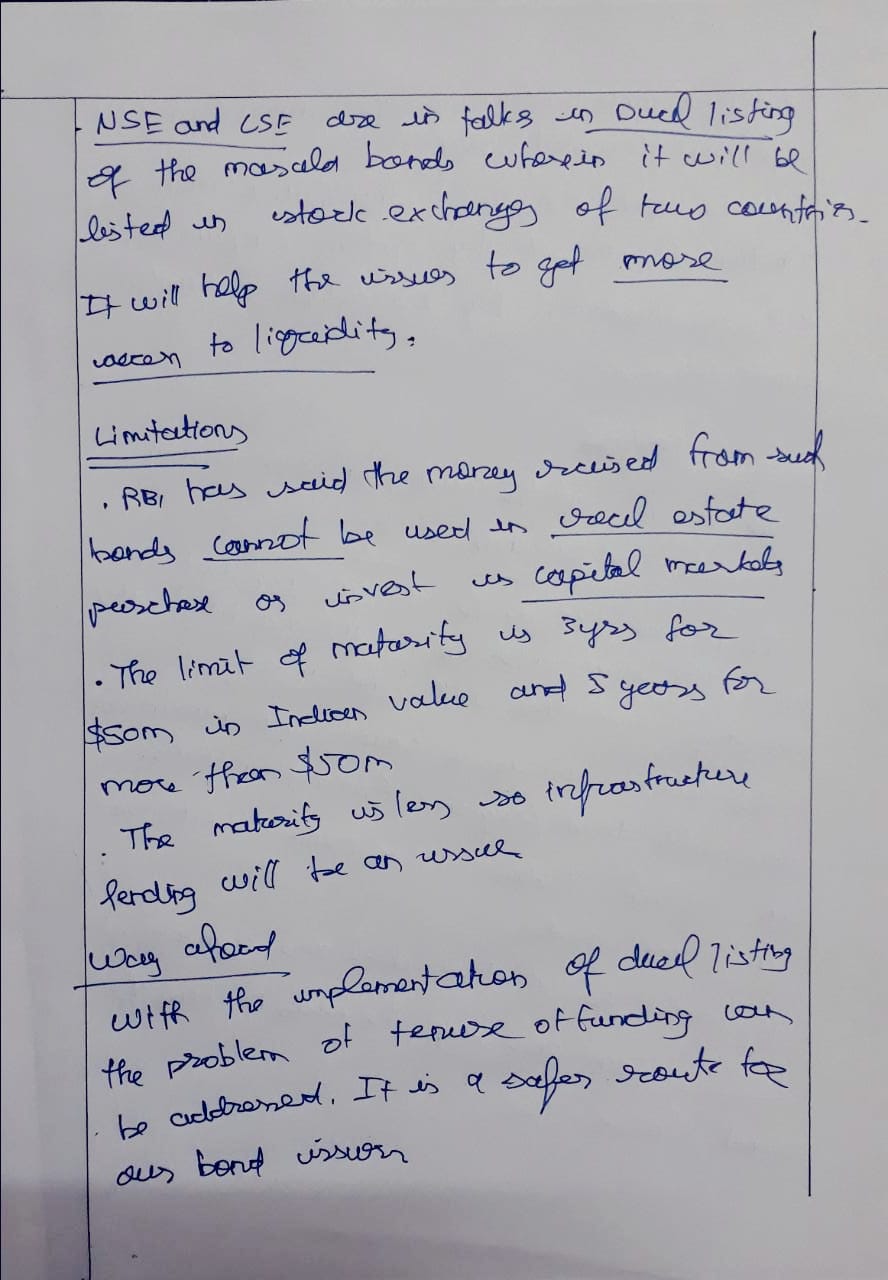 NSE and LSE are in talks in Dual listing
of the masala bonds wherein it will be
listed in stock exchanges of two countries.
It will help the issues to get more
access to liquidity.
Limitations
. RBI has said the money raised from such
bonds cannot be used in real estate
purchase or invest in capital markets
. The limit of maturity is 3yrs for
$50m in Indian value and 5 years for
more than $50m
. The maturity is less so infrastructure
lending will be an issue
Way ahead
With the implementation of dual listing
the problem of tenure of funding can
be addressed. It is a safer route for
our bond issuers